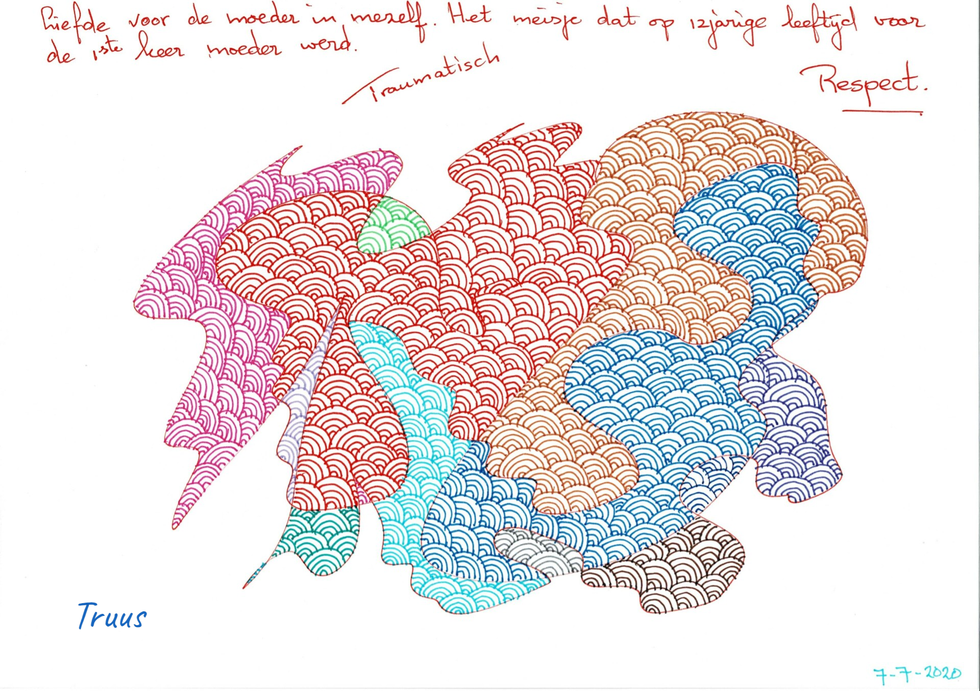 Liefde voor de moeder in mezelf. Het meisje dat op 12jarige leeftijd voor
de 1ste keer moeder werd.
Traumatisch
Respect.
Truus
7-7-2020